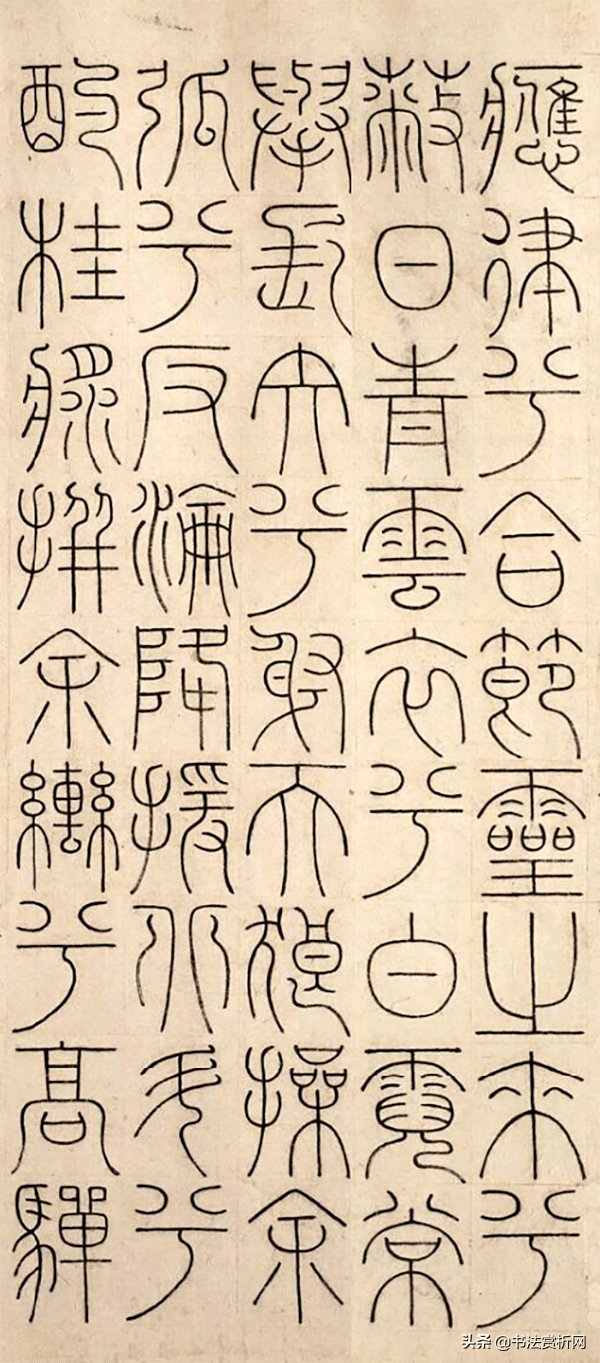 應律兮合節靈之來兮
蔽日青雲衣兮白霓常
舉長矢兮射天狼操余
弧兮反淪降援北斗兮
酌桂漿撰余轡兮高驒
头条 @书法赏析网